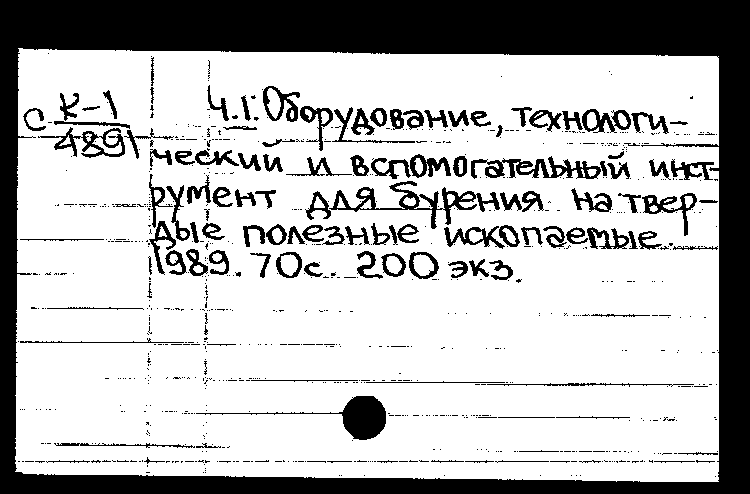 С К-1
4891
Ч.1: Оборудование, технологи-
ческий и вспомогательный инст-
румент для бурения на твер-
дые полезные ископаемые.
1989. 70с. 200 экз.